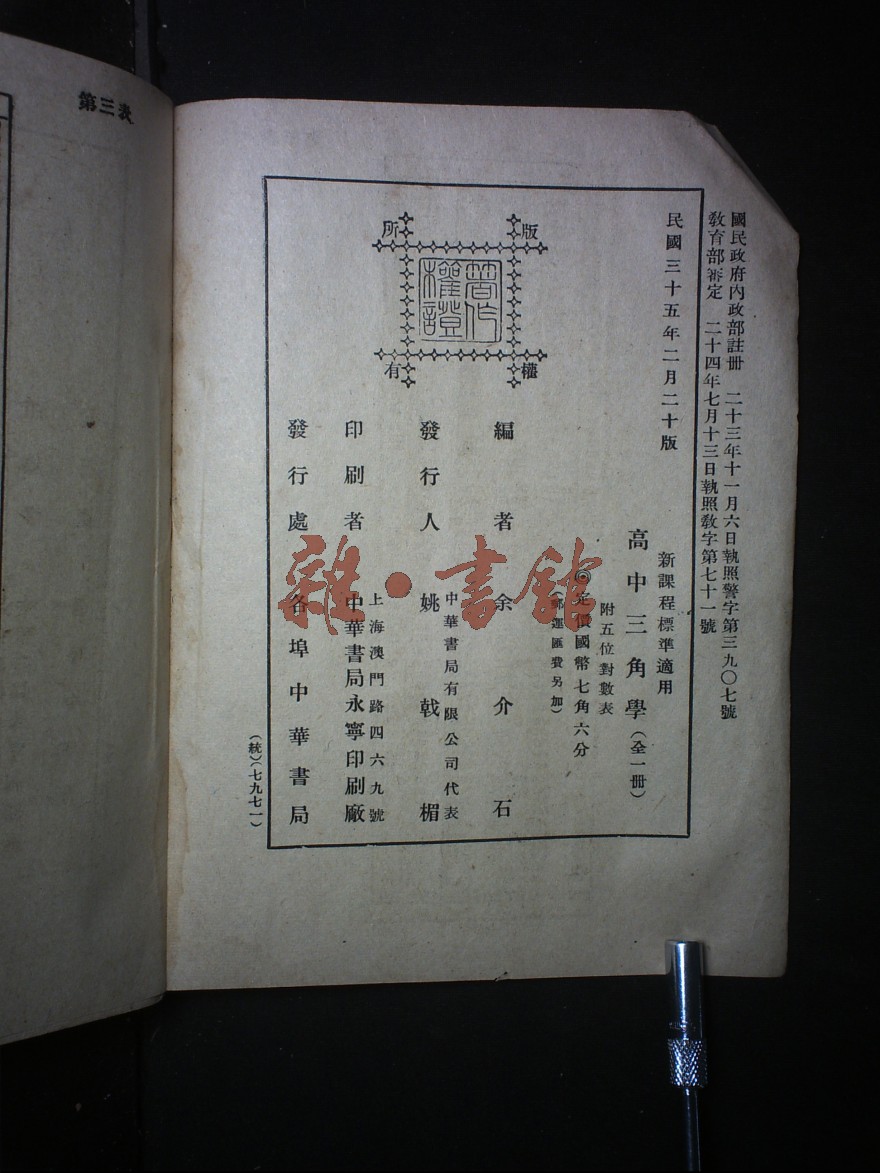 第三表
國民政府內政部註冊　二十三年十一月六日執照警字第三九〇七號
教育部審定　二十四年七月十三日執照教字第七十一號
民國三十五年二月二十版
新課程標準適用
高中三角學(全一冊)
附五位對數表
◎定價國幣七角六分
(郵運匯費另加)
編者　余介石
中華書局有限公司代表
發行人　姚戟楣
上海澳門路四六九號
印刷者　中華書局永寧印刷廠
發行處　各埠中華書局
(統)(七九七一)
版權所有
著作權證
雜·書館